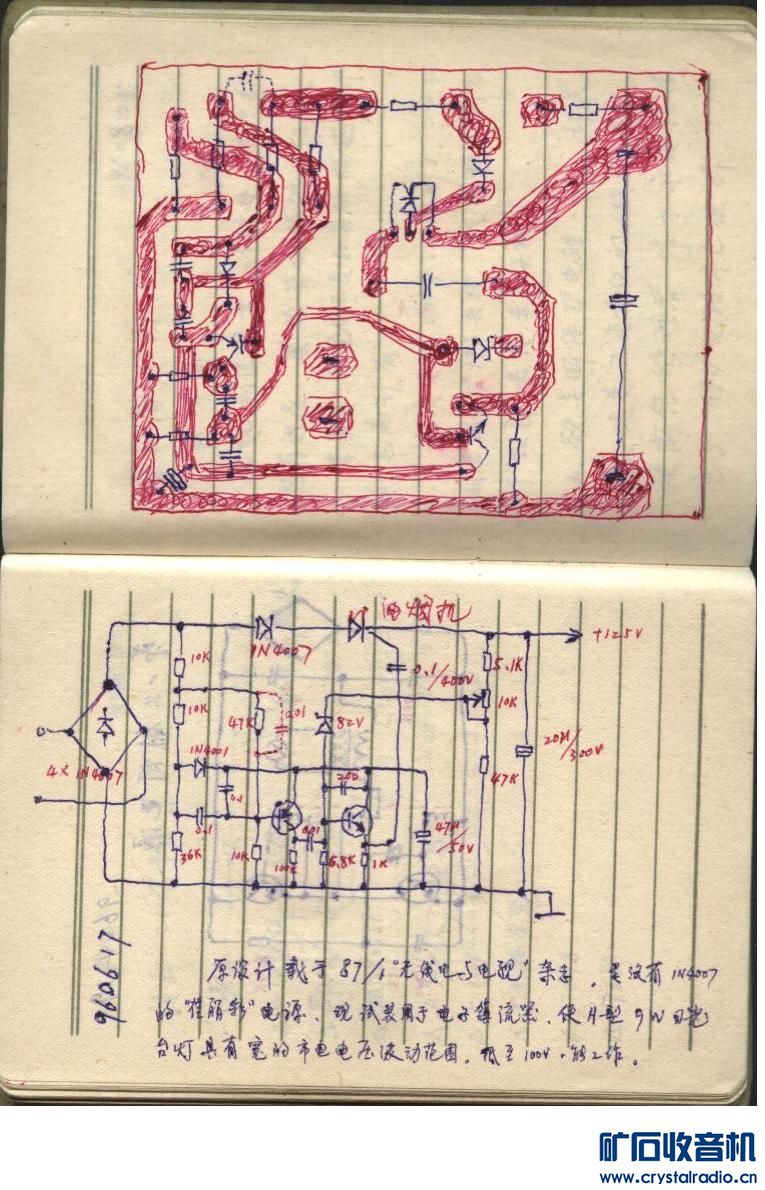 +125V
1N4007
0.1/400V
10K
5.1K
10K
10K
47K
0.01
82V
20μ/300V
4×1N4007
1N4001
47K
0.1
200
0.1
0.01
47μ/50V
36K
10K
6.8K
1K
960617
原设计载于87/1"无线电与电视"杂志，是没有1N4007
的"佳丽彩"电源、现试装用于电子镇流器、使H型9W日光
台灯具有宽的市电电压波动范围，低至100V.能工作。
矿石收音机
www.crystalradio.cn